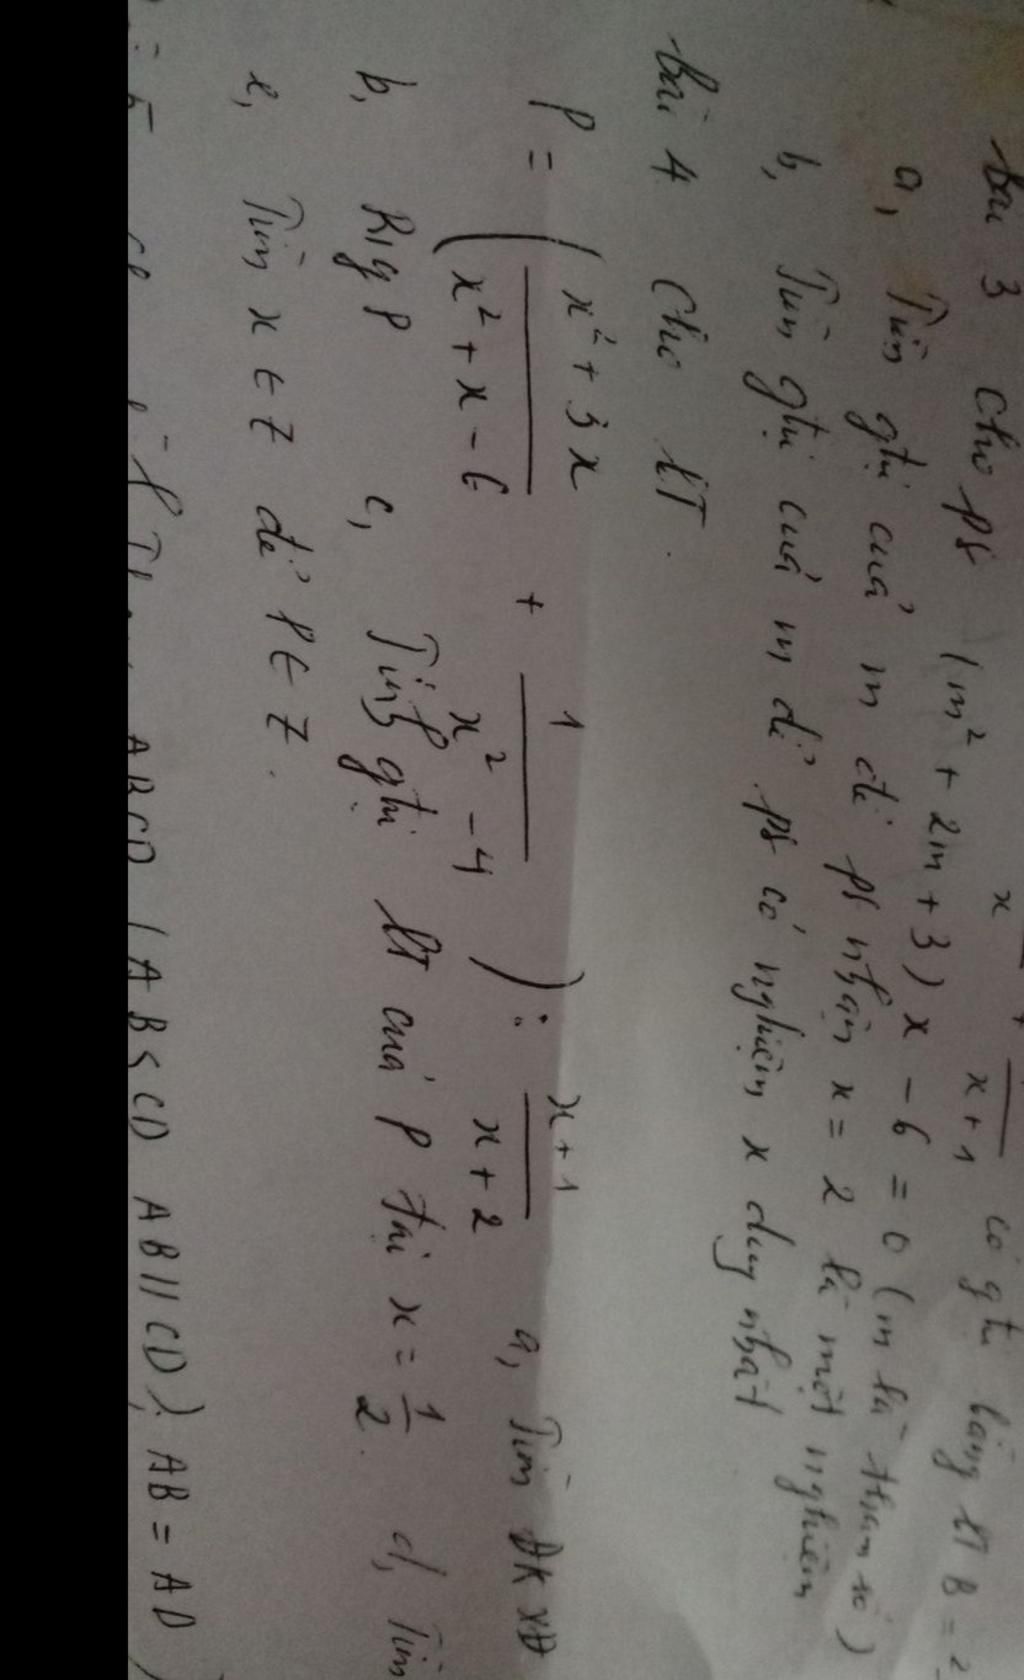 x
x+1 có gtrị bằng BT B =
bài 3 Cho pt (m² + 2m + 3) x - 6 = 0 (m là tham số)
a, Tìm gtrị của m để pt nhận x = 2 là một nghiệm
b, Tìm gtrị của m để pt có nghiệm x duy nhất
bài 4 Cho BT.
P = ( x² + 3x / x² + x - 6 + 1 / x² - 4 ) : x + 1 / x + 2 a, Tìm ĐKXĐ
b, R/g P c, Tính gtrị BT của P tại x = 1/2. d, Tìm
e, Tìm x ∈ Z để P ∈ Z.
ABCD (AB < CD AB // CD) AB = AD